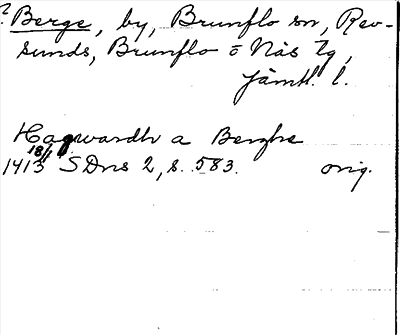 ? Berge, by, Brunflo sn, Rev-
sunds, Brunflo o Näs tg,
Jämtl. l.
Hagwardh a Berghe
18/1
1413 SDns 2, s. 583. orig.